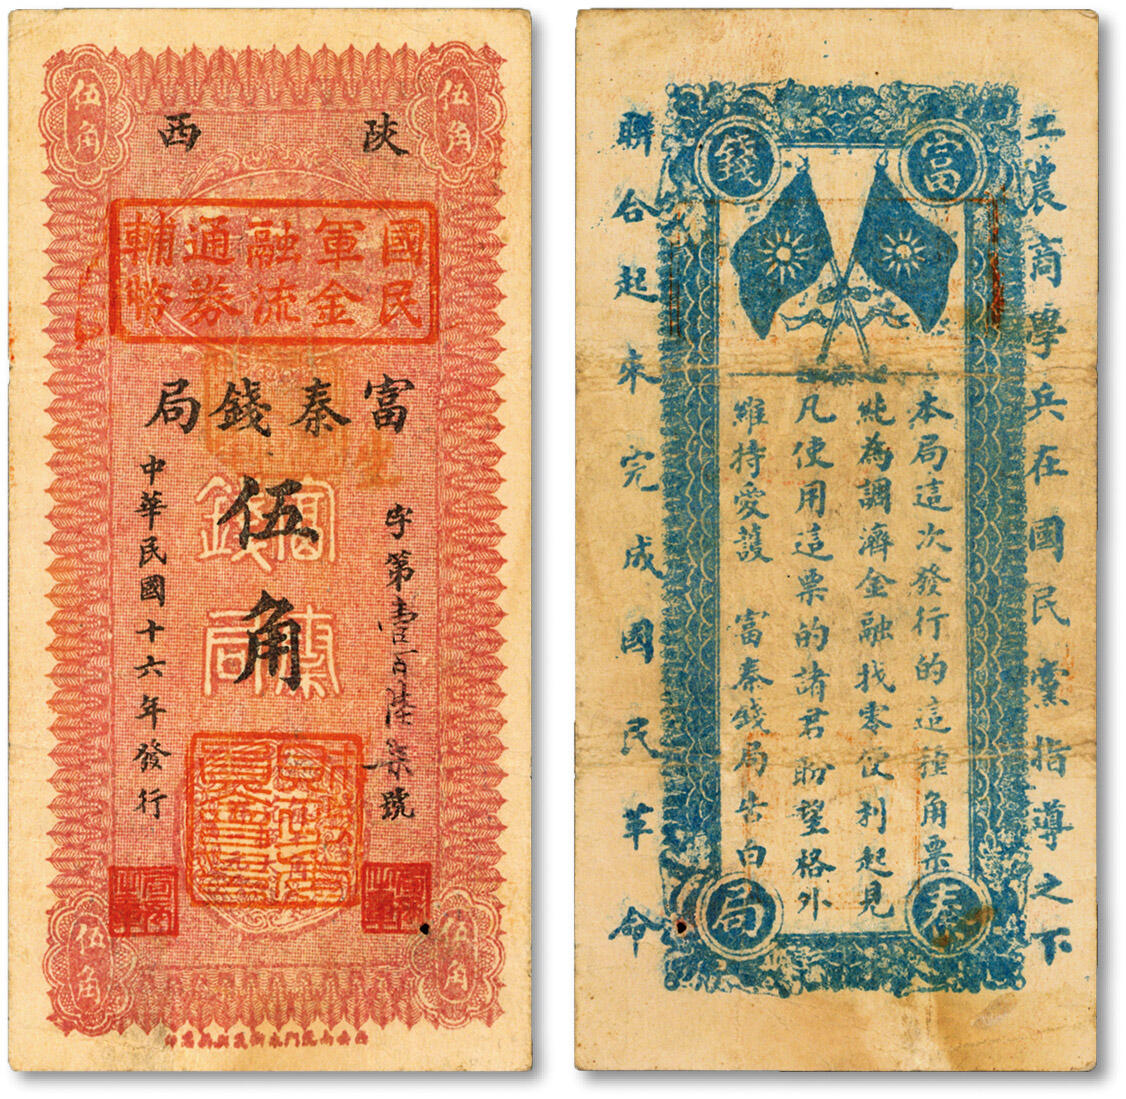 伍角
伍角
陝西
國民軍金融流通券輔幣
富秦錢局
字第壹百陸柒號
伍角
富秦錢局
中華民國十六年發行
伍角
伍角
富秦錢局
工農商學兵在國民黨指導之下
聯合起來完成國民革命
本局這次發行的這種角票
純為調濟金融找零便利起見
凡使用這票的諸君盼望格外
維持愛護 富秦錢局告白